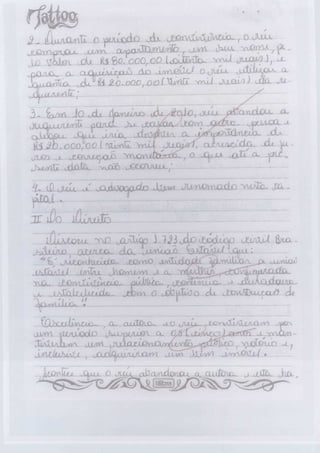 Tattoo
2 - Durante o período de convivência, o réu
comprou um apartamento, em seu nome, pe
lo valor de R$ 80.000,00 (oitenta mil reais), e
para a aquisição do imóvel o réu utilizou a
quantia de R$ 20.000,00 (vinte mil reais) da re
querente;
3 - Em 10 de Janeiro de 2010, réu abandou a
requerente para se casar com outra pessoa e
alegou que iria devolver a importância de
R$ 20.000,00 (vinte mil reais), acrescida de ju
ros e correção monetária, o que até a pre
sente data não ocorreu;
4 - O réu é advogado bem renomado nesta ca
pital.
II Do Direito
Discorre no artigo 1.723 do código civil Bra
sileiro, acerca da união Estável que:
"É reconhecida como entidade familiar a união
estável entre homem e a mulher, configurada
na convivência pública, contínua e duradoura
e estabelecida com o objetivo de constituição de
família."
Excelência, a autora e o réu, conviveram por
um período superior a 08 (cinco) anos e man
tiveram um relacionamento público, notório e,
inclusive, adquiriram um bem imóvel.
Acontece que o réu abandonou a autora e esta ha